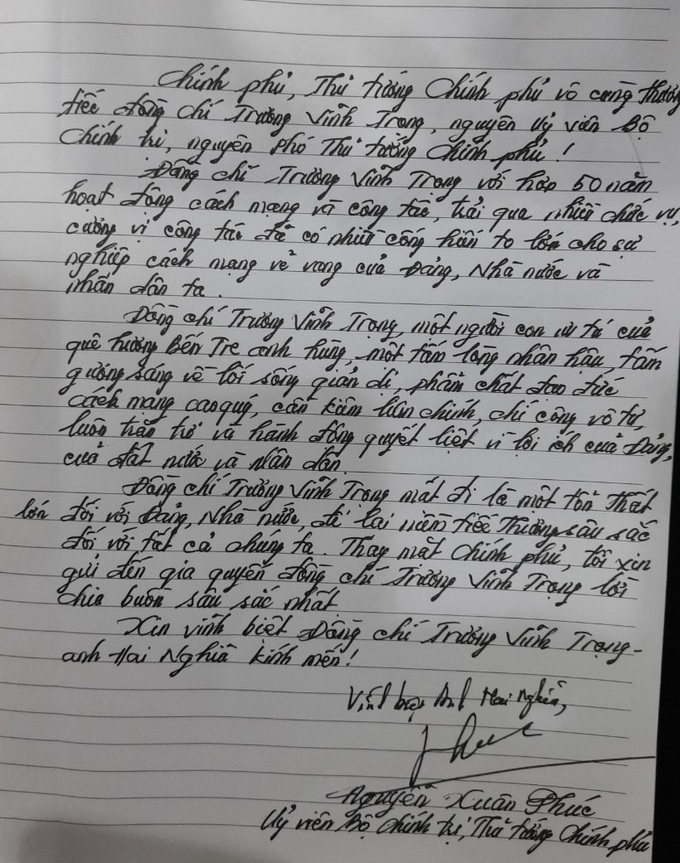 Chính phủ, Thủ tướng Chính phủ vô cùng thương
tiếc đồng chí Trương Vĩnh Trọng, nguyên Uỷ viên Bộ
Chính trị, nguyên Phó Thủ tướng Chính phủ!
Đồng chí Trương Vĩnh Trọng với hơn 50 năm
hoạt động cách mạng và công tác, trải qua nhiều chức vụ,
cương vị công tác đã có nhiều cống hiến to lớn cho sự
nghiệp cách mạng vẻ vang của Đảng, Nhà nước và
nhân dân ta.
Đồng chí Trương Vĩnh Trọng, một người con ưu tú của
quê hương Bến Tre anh hùng, một tấm lòng nhân hậu, tấm
gương sáng về lối sống giản dị, phẩm chất đạo đức
cách mạng cao quý, cần kiệm liêm chính, chí công vô tư,
luôn trăn trở và hành động quyết liệt vì lợi ích của Đảng,
của đất nước và nhân dân.
Đồng chí Trương Vĩnh Trọng mất đi là một tổn thất
lớn đối với Đảng, Nhà nước, để lại niềm tiếc thương sâu sắc
đối với tất cả chúng ta. Thay mặt Chính phủ, tôi xin
gửi đến gia quyến đồng chí Trương Vĩnh Trọng lời
chia buồn sâu sắc nhất.
Xin vĩnh biệt Đồng chí Trương Vĩnh Trọng -
anh Hai Nghĩa kính mến!
Vĩnh biệt Anh Hai Nghĩa,
Phúc
Nguyễn Xuân Phúc
Uỷ viên Bộ Chính trị, Thủ tướng Chính phủ